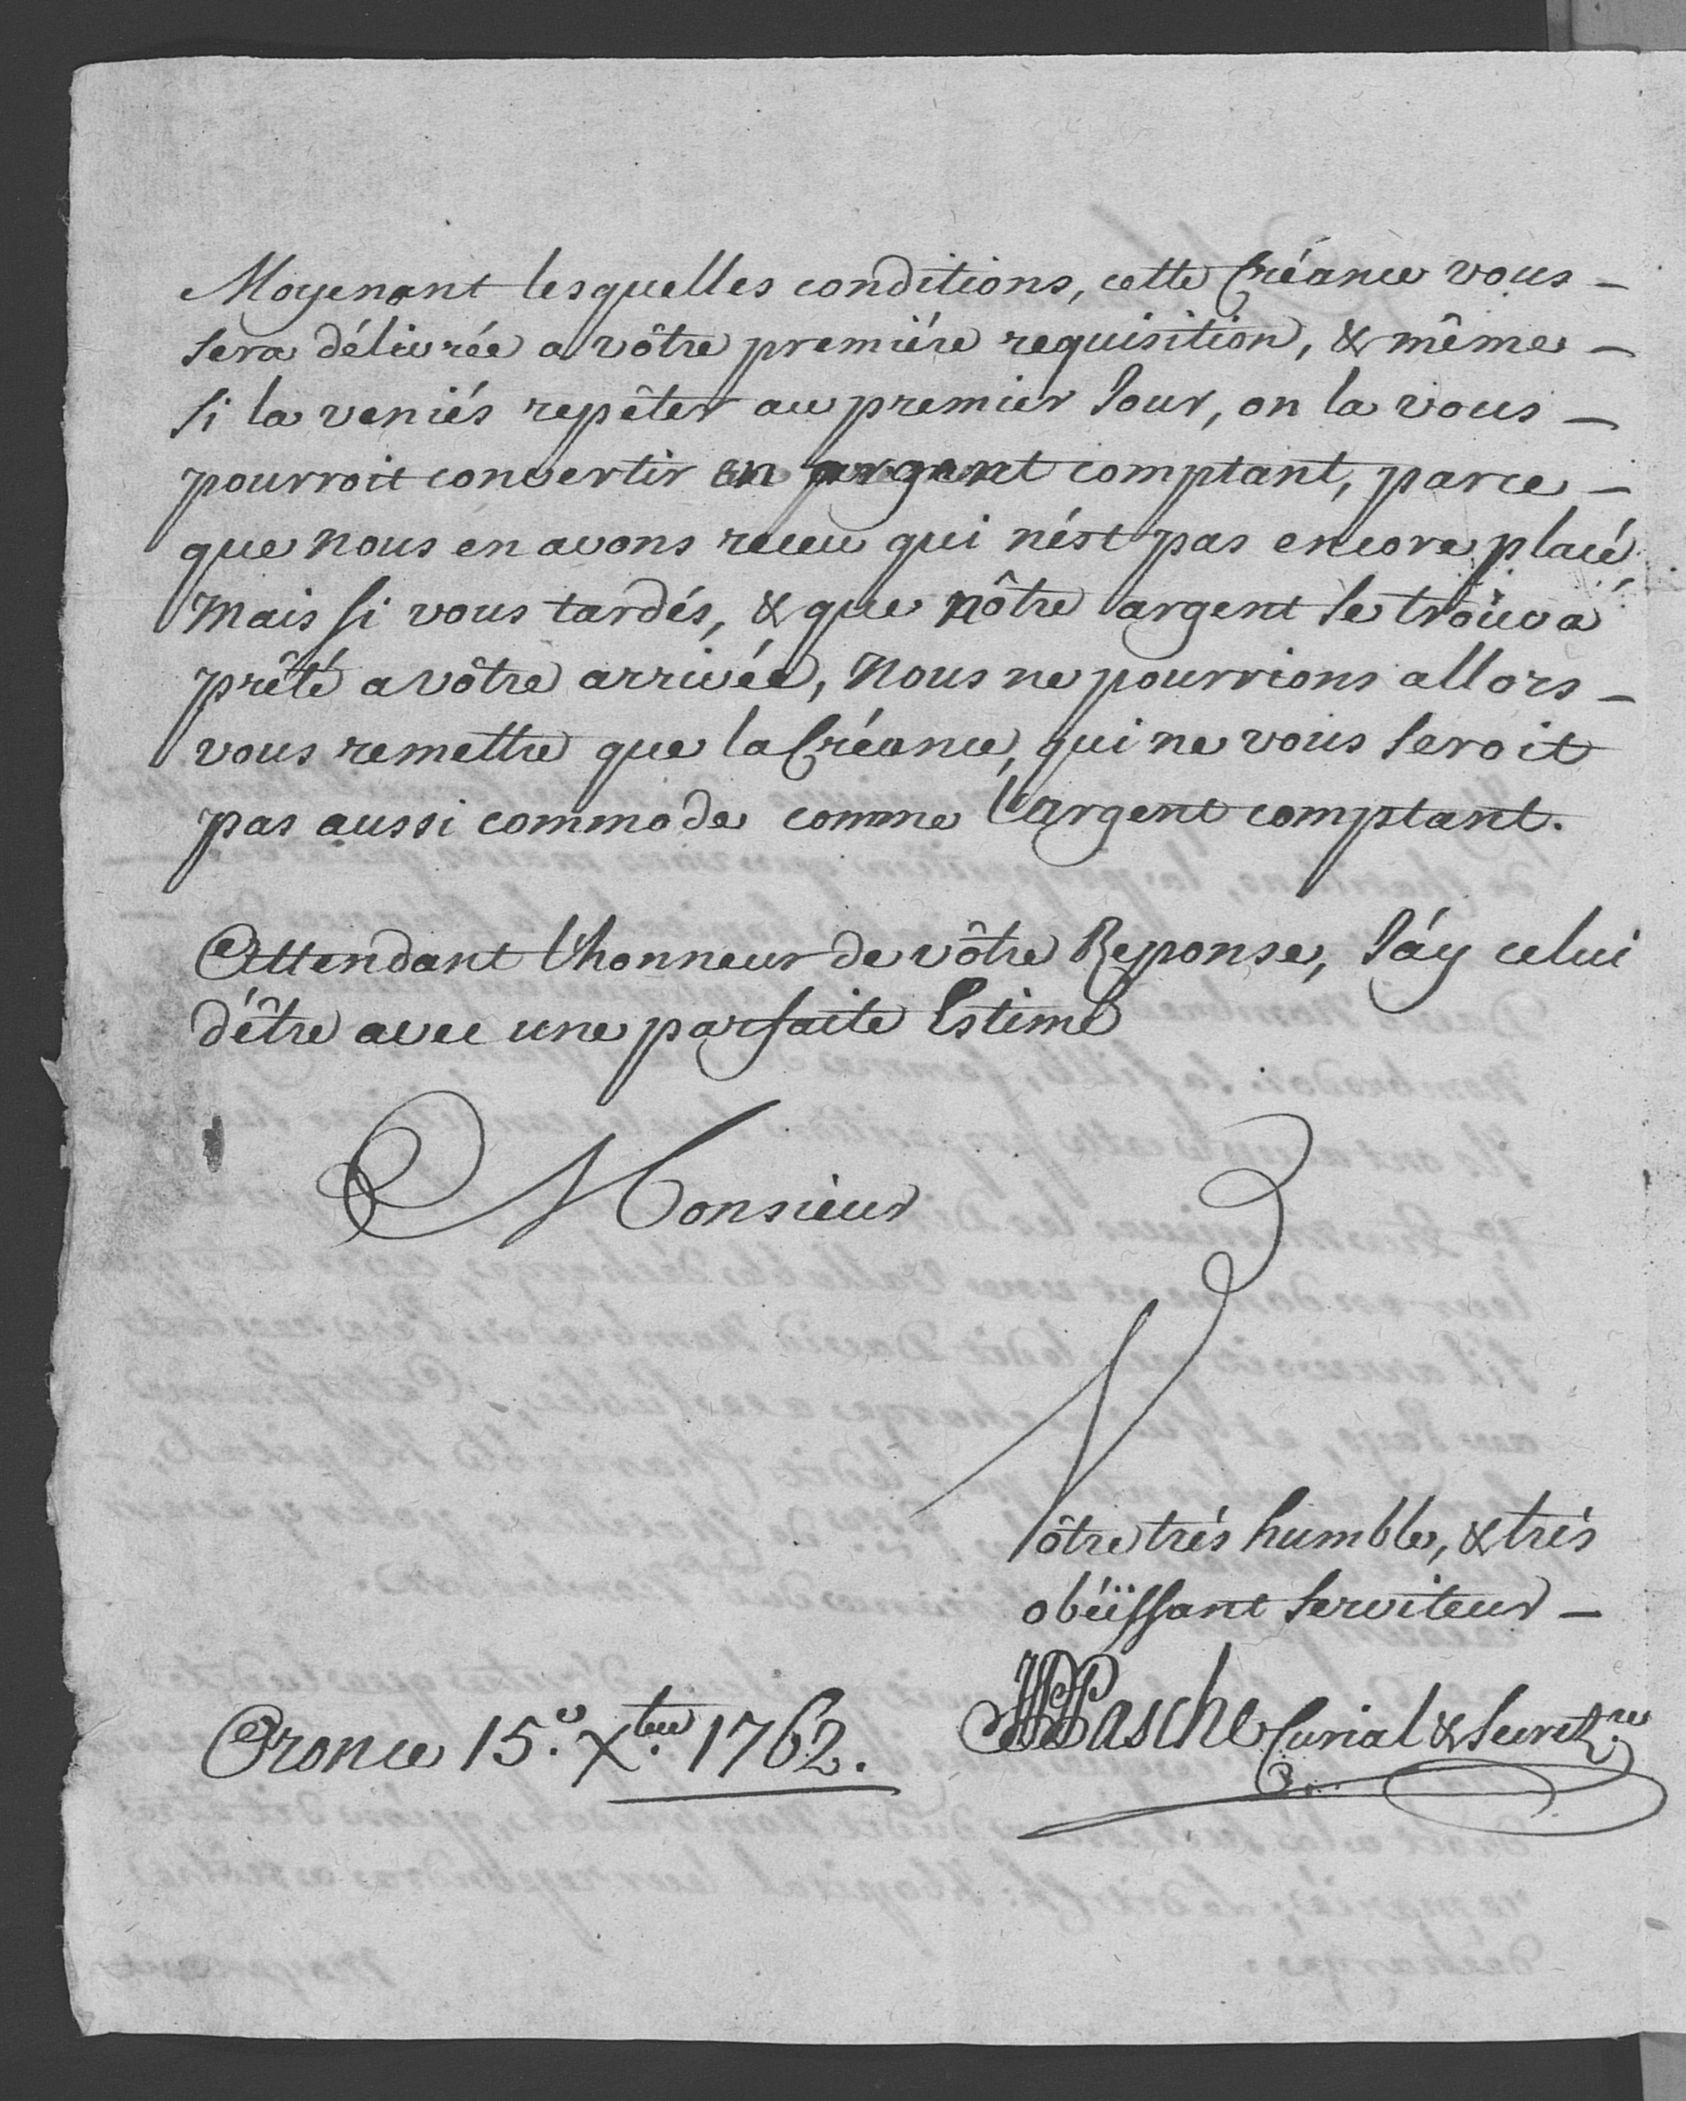 Moyenant lesquelles conditions, cette Créance vous –
sera délivrée a vôtre premiére requisition, & même –
si la veniés repêter au premier Jour, on la vous –
pourroit convertir en argent comptant, parce –
que nous en avons receu qui nést pas encore placé,
Mais si vous tardés, & que nôtre argent se trouva
prêté a vôtre arrivée, Nous ne pourrions allors –
vous remettre que la Créance, qui ne vous seroit
pas aussi commode comme l'argent comptant.
Attendant l'honneur de vôtre Reponse, J'áy celui
d'être avec une parfaite Estime
Monsieur
Vôtre trés humble, & trés
obéïssant serviteur –
Pasche Curial & Secret.re
Oronce 15.e Xbre 1762.